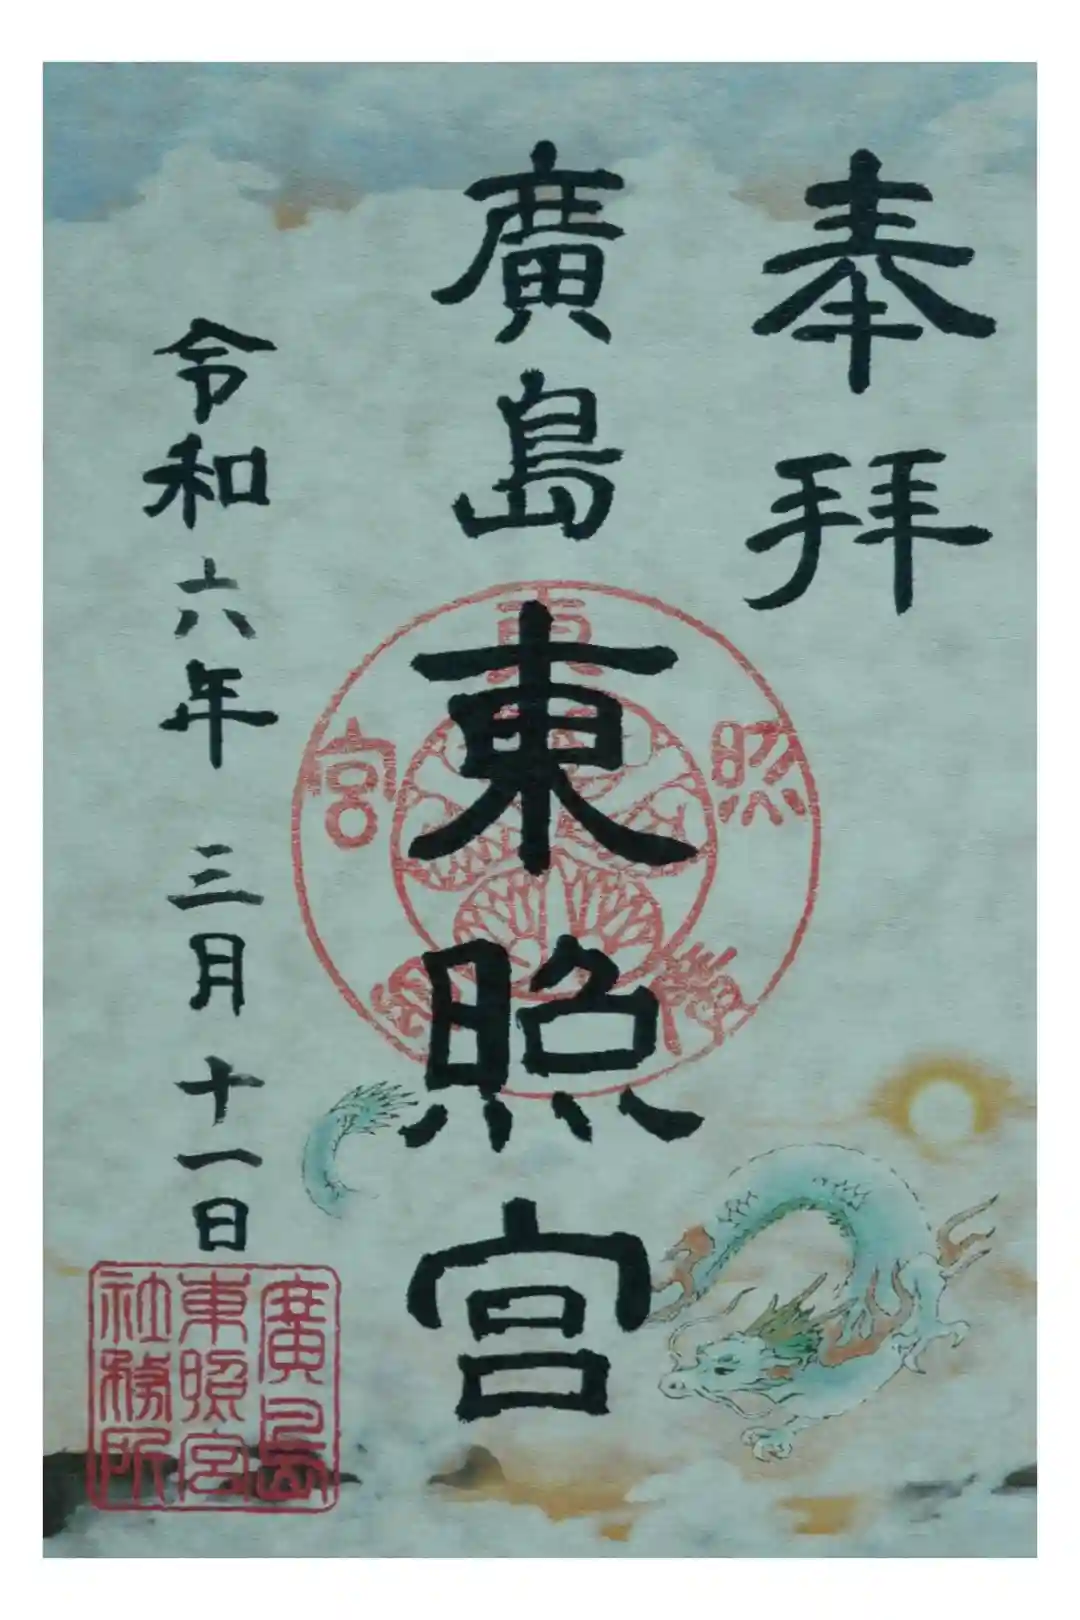 奉拝
廣島東照宮
令和六年 三月 十一日
東照宮
廣島
東照宮
社務所